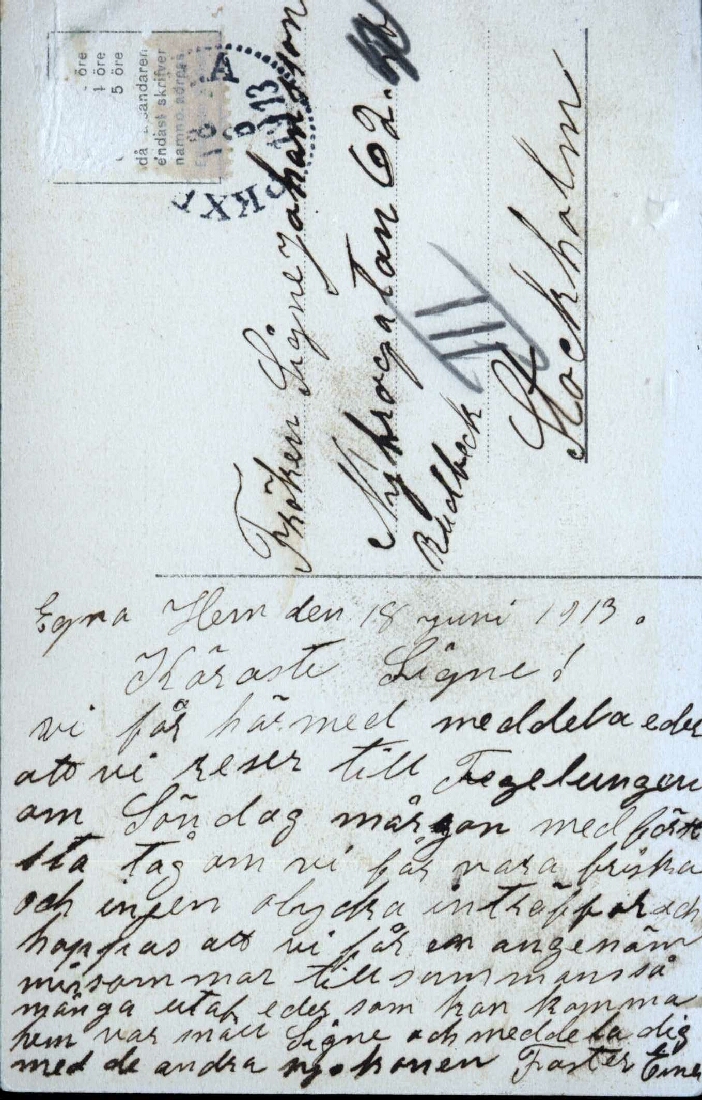 öre
öre
5 öre
då andaren
endast skrifver
namn o. adress
PKXP
Fröken Signe Johansson
Nybrogatan 62.
Rudbeck
III
Stockholm
Egna Hem den 18 juni 1913.
Käraste Signe!
vi får härmed meddela eder
att vi reser till
om Söndag mårgon med förs
sta tåg om vi får vara friska
och ingen olycka inträffar och
hoppas att vi får en angenäm
misommar tillsammans så
många utaf eder som kan komma
hem var snäll Signe och meddela dig
med de andra syskonen Faster